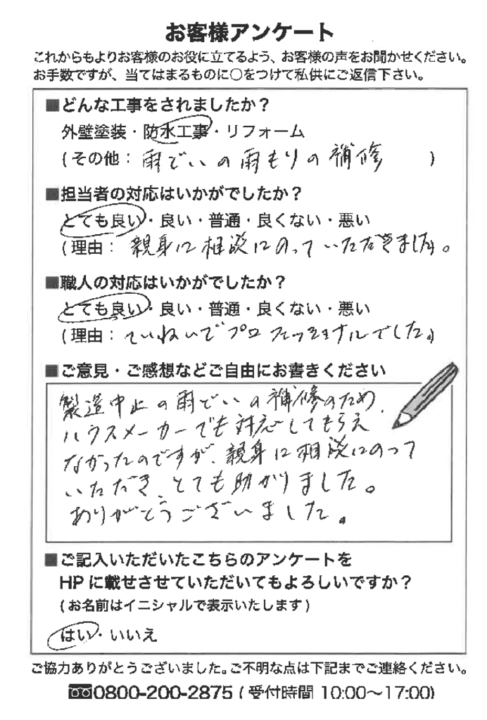 お客様アンケート
これからもよりお客様のお役に立てるよう、お客様の声をお聞かせください。
お手数ですが、当てはまるものに○をつけて私供にご返信下さい。
■どんな工事をされましたか？
外壁塗装・防水工事・リフォーム
(その他： 雨どいの雨もりの補修 )
■担当者の対応はいかがでしたか？
とても良い・良い・普通・良くない・悪い
(理由： 親身に相談にのっていただきました。
■職人の対応はいかがでしたか？
とても良い・良い・普通・良くない・悪い
(理由： ていねいでプロフェッショナルでした。)
■ご意見・ご感想などご自由にお書きください
製造中止の雨どいの補修のため、
ハウスメーカーでも対応してもらえ
なかったのですが、親身に相談にのって
いただき、とても助かりました。
ありがとうございました。
■ご記入いただいたこちらのアンケートを
HPに載せさせていただいてもよろしいですか？
(お名前はイニシャルで表示いたします)
はい・いいえ
ご協力ありがとうございました。ご不明な点は下記までご連絡ください。
0800-200-2875 (受付時間 10:00～17:00)